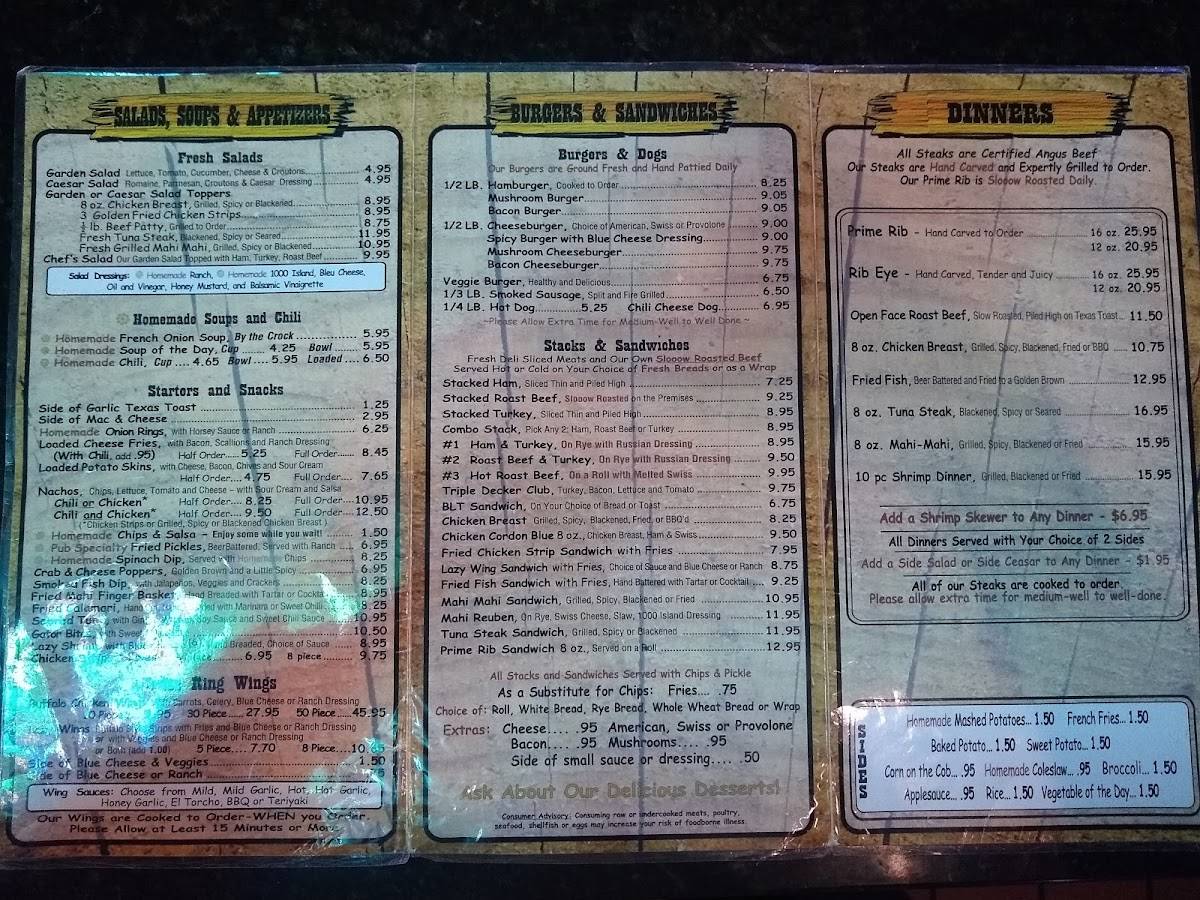 SALADS, SOUPS & APPETIZERS
Fresh Salads
Garden Salad Lettuce, Tomato, Cucumber, Cheese & Croutons.... 4.95
Caesar Salad Romaine, Parmesan, Croutons & Caesar Dressing .... 4.95
Garden or Caesar Salad Toppers
8 oz. Chicken Breast, Grilled, Spicy or Blackened.... 8.95
3 Golden Fried Chicken Strips.... 8.95
lb. Beef Patty, Grilled to Order.... 8.75
Fresh Tuna Steak, Blackened, Spicy or Seared.... 11.95
Fresh Grilled Mahi Mahi, Grilled, Spicy or Blackened.... 10.95
Chef's Salad Our Garden Salad Topped with Ham, Turkey, Roast Beef .... 9.95
Salad Dressings: Homemade Ranch, Homemade 1000 Island, Bleu Cheese,
Oil and Vinegar, Honey Mustard, and Balsamic Vinaigrette
Homemade Soups and Chili
Homemade French Onion Soup, By the Crock .... 5.95
Homemade Soup of the Day, Cup .... 4.25 Bowl .... 5.95
Homemade Chili, Cup .... 4.65 Bowl .... 5.95 Loaded .... 6.50
Starters and Snacks
Side of Garlic Texas Toast .... 1.25
Side of Mac & Cheese .... 2.95
Homemade Onion Rings, with Horsey Sauce or Ranch .... 6.25
Loaded Cheese Fries, with Bacon, Scallions and Ranch Dressing
(With Chili, add .95) Half Order.... 5.25 Full Order.... 8.45
Loaded Potato Skins, with Cheese, Bacon, Chives and Sour Cream
Half Order.... 4.75 Full Order.... 7.65
Nachos, Chips, Lettuce, Tomato and Cheese - with Sour Cream and Salsa
Chili or Chicken* Half Order.... 8.25 Full Order....10.95
Chili and Chicken* Half Order.... 9.50 Full Order....12.50
(*Chicken Strips or Grilled, Spicy or Blackened Chicken Breast)
Homemade Chips & Salsa - Enjoy some while you wait! .... 1.50
Pub Specialty Fried Pickles, Beer Battered, Served with Ranch .... 6.95
Homemade Spinach Dip, Served with Homemade Chips .... 8.25
Crab & Cheese Poppers, Golden Brown and a Little Spicy .... 6.95
Smoked Fish Dip, with Jalapeños, Veggies and Crackers .... 8.25
Fried Mahi Finger Basket, Hand Breaded with Tartar or Cocktail 8.95
Fried Calamari, Hand with Marinara or Sweet Chili 8.25
Seared Tuna with Soy Sauce and Sweet Chili Sauce 10.95
Gator Bites with Sweet .... 10.50
Lazy Shrimp with Hand Breaded, Choice of Sauce .... 8.95
Chicken 6.95 8 piece.... 9.75
Ring Wings
Buffalo Chicken Wings Carrots, Celery, Blue Cheese or Ranch Dressing
10 Piece 30 Piece.... 27.95 50 Piece....45.95
Wings Buffalo Style Strips with Fries and Blue Cheese or Ranch Dressing
or with Veggies and Blue Cheese or Ranch Dressing
or Both (add 1.00) 5 Piece.... 7.70 8 Piece....10
Side of Blue Cheese & Veggies.... 1.50
Side of Blue Cheese or Ranch ....
Wing Sauces: Choose from Mild, Mild Garlic, Hot, Hot Garlic,
Honey Garlic, El Torcho, BBQ or Teriyaki
Our Wings are Cooked to Order-WHEN you Order.
Please Allow at Least 15 Minutes or More.
BURGERS & SANDWICHES
Burgers & Dogs
Our Burgers are Ground Fresh and Hand Pattied Daily
1/2 LB. Hamburger, Cooked to Order.... 8.25
Mushroom Burger.... 9.05
Bacon Burger.... 9.05
1/2 LB. Cheeseburger, Choice of American, Swiss or Provolone.... 9.00
Spicy Burger with Blue Cheese Dressing.... 9.00
Mushroom Cheeseburger.... 9.75
Bacon Cheeseburger.... 9.75
Veggie Burger, Healthy and Delicious.... 6.75
1/3 LB. Smoked Sausage, Split and Fire Grilled.... 6.50
1/4 LB. Hot Dog....5.25 Chili Cheese Dog.... 6.95
~Please Allow Extra Time for Medium-Well to Well Done ~
Stacks & Sandwiches
Fresh Deli Sliced Meats and Our Own Slooow Roasted Beef
Served Hot or Cold on Your Choice of Fresh Breads or as a Wrap
Stacked Ham, Sliced Thin and Piled High .... 7.25
Stacked Roast Beef, Slooow Roasted on the Premises .... 9.25
Stacked Turkey, Sliced Thin and Piled High .... 8.95
Combo Stack, Pick Any 2; Ham, Roast Beef or Turkey .... 8.95
#1 Ham & Turkey, On Rye with Russian Dressing .... 8.95
#2 Roast Beef & Turkey, On Rye with Russian Dressing .... 9.50
#3 Hot Roast Beef, On a Roll with Melted Swiss .... 9.95
Triple Decker Club, Turkey, Bacon, Lettuce and Tomato .... 9.75
BLT Sandwich, On Your Choice of Bread or Toast .... 6.75
Chicken Breast Grilled, Spicy, Blackened, Fried or BBQ'd .... 8.25
Chicken Cordon Blue 8 oz., Chicken Breast, Ham & Swiss .... 9.50
Fried Chicken Strip Sandwich with Fries .... 7.95
Lazy Wing Sandwich with Fries, Choice of Sauce and Blue Cheese or Ranch 8.75
Fried Fish Sandwich with Fries, Hand Battered with Tartar or Cocktail .... 9.25
Mahi Mahi Sandwich, Grilled, Spicy, Blackened or Fried .... 10.95
Mahi Reuben, On Rye, Swiss Cheese, Slaw, 1000 Island Dressing .... 11.95
Tuna Steak Sandwich, Grilled, Spicy or Blackened .... 11.95
Prime Rib Sandwich 8 oz., Served on a Roll .... 12.95
All Stacks and Sandwiches Served with Chips & Pickle
As a Substitute for Chips: Fries.... .75
Choice of: Roll, White Bread, Rye Bread, Whole Wheat Bread or Wrap
Extras: Cheese.... .95 American, Swiss or Provolone
Bacon.... .95 Mushrooms.... .95
Side of small sauce or dressing.... .50
Ask About Our Delicious Desserts!
Consumer Advisory: Consuming raw or undercooked meats, poultry,
seafood, shellfish or eggs may increase your risk of foodborne illness.
DINNERS
All Steaks are Certified Angus Beef
Our Steaks are Hand Carved and Expertly Grilled to Order.
Our Prime Rib is Slooow Roasted Daily.
Prime Rib - Hand Carved to Order .... 16 oz. 25.95
12 oz. 20.95
Rib Eye - Hand Carved, Tender and Juicy .... 16 oz. 25.95
12 oz. 20.95
Open Face Roast Beef, Slow Roasted, Piled High on Texas Toast... 11.50
8 oz. Chicken Breast, Grilled, Spicy, Blackened, Fried or BBQ .... 10.75
Fried Fish, Beer Battered and Fried to a Golden Brown .... 12.95
8 oz. Tuna Steak, Blackened, Spicy or Seared .... 16.95
8 oz. Mahi-Mahi, Grilled, Spicy, Blackened or Fried .... 15.95
10 pc Shrimp Dinner, Grilled, Blackened or Fried .... 15.95
Add a Shrimp Skewer to Any Dinner - $6.95
All Dinners Served with Your Choice of 2 Sides
Add a Side Salad or Side Ceasar to Any Dinner - $1.95
All of our Steaks are cooked to order.
Please allow extra time for medium-well to well-done.
SIDES
Homemade Mashed Potatoes... 1.50 French Fries... 1.50
Baked Potato... 1.50 Sweet Potato... 1.50
Corn on the Cob... .95 Homemade Coleslaw... .95 Broccoli... 1.50
Applesauce... .95 Rice... 1.50 Vegetable of the Day... 1.50